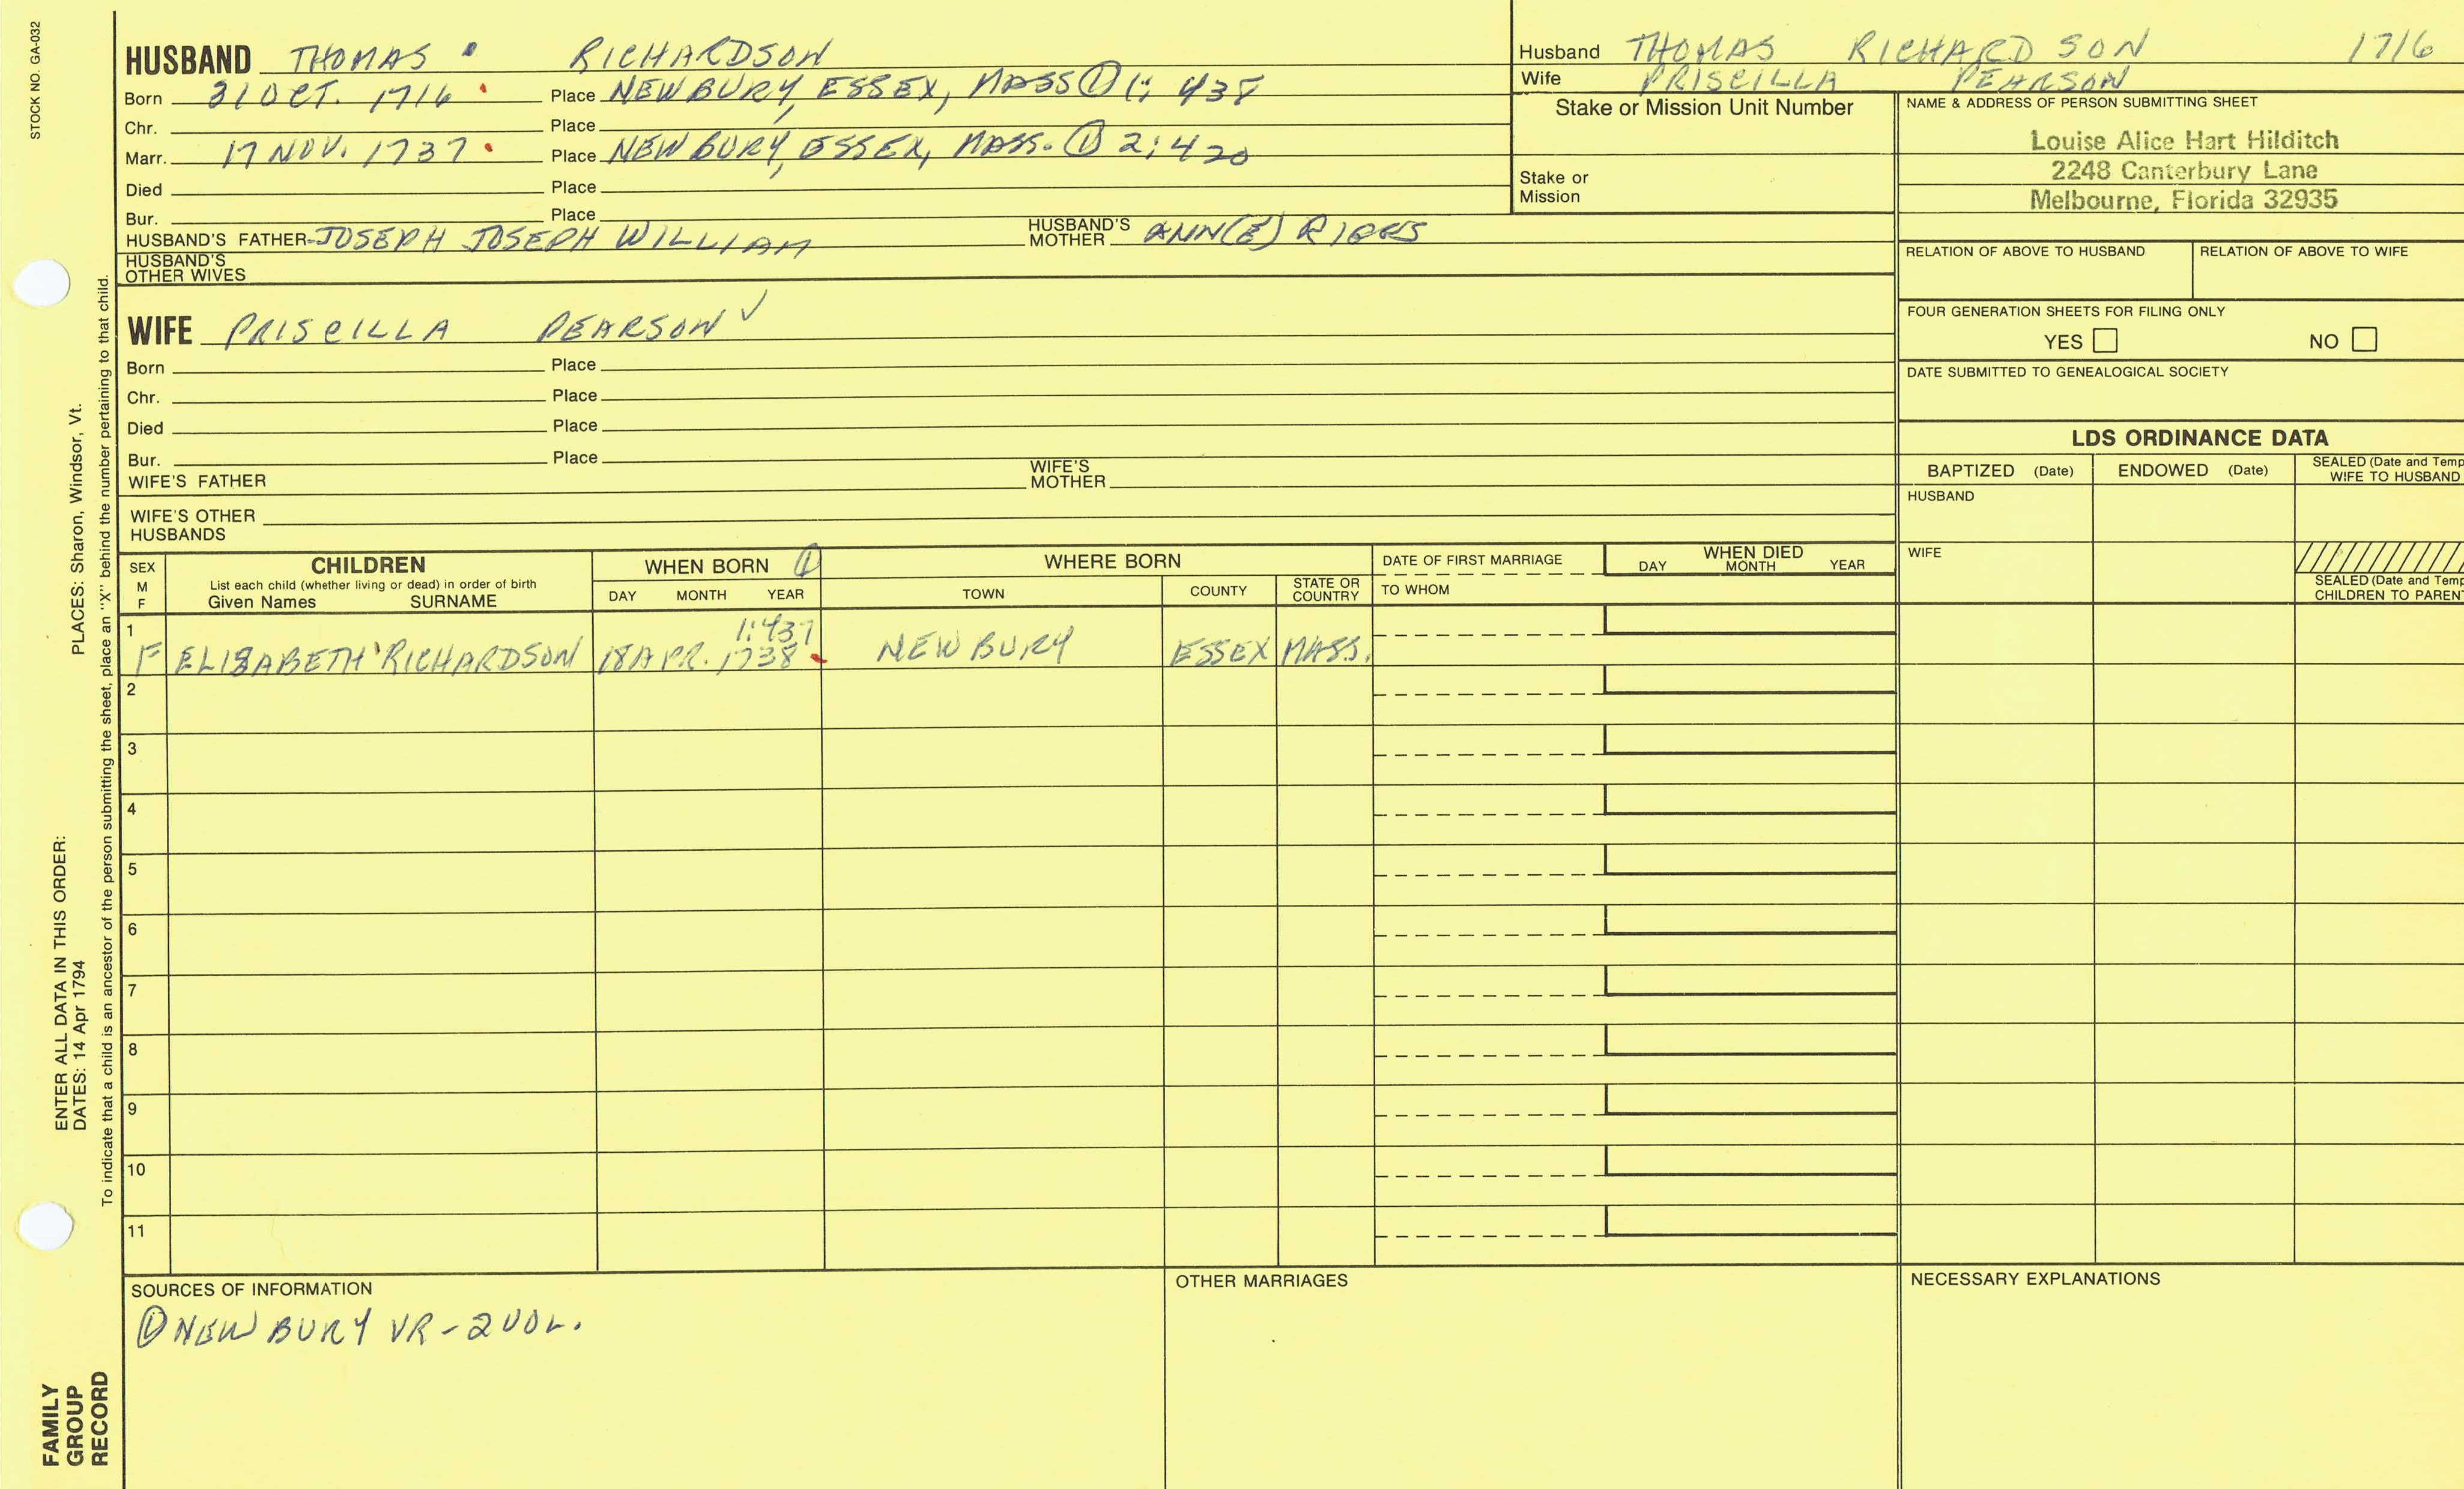 STOCK NO. GA-032
HUSBAND THOMAS RICHARDSON
Born 31 OCT. 1716 Place NEWBURY, ESSEX, MASS ① 1: 438
Chr. Place
Marr. 17 NOV. 1737 Place NEWBURY, ESSEX, MASS. ① 2: 420
Died Place
Bur. Place
HUSBAND'S FATHER JOSEPH JOSEPH WILLIAM HUSBAND'S MOTHER ANN(E) RIGGS
HUSBAND'S
OTHER WIVES
Husband THOMAS RICHARDSON 1716
Wife PRISCILLA PEARSON
Stake or Mission Unit Number
Stake or
Mission
NAME & ADDRESS OF PERSON SUBMITTING SHEET
Louise Alice Hart Hilditch
2248 Canterbury Lane
Melbourne, Florida 32935
RELATION OF ABOVE TO HUSBAND RELATION OF ABOVE TO WIFE
FOUR GENERATION SHEETS FOR FILING ONLY
YES NO
DATE SUBMITTED TO GENEALOGICAL SOCIETY
WIFE PRISCILLA PEARSON ✓
Born Place
Chr. Place
Died Place
Bur. Place
WIFE'S FATHER WIFE'S MOTHER
WIFE'S OTHER
HUSBANDS
LDS ORDINANCE DATA
BAPTIZED (Date) ENDOWED (Date) SEALED (Date and Temp
WIFE TO HUSBAND
HUSBAND
WIFE
SEALED (Date and Temp
CHILDREN TO PARENT
SEX
M
F
CHILDREN
List each child (whether living or dead) in order of birth
Given Names SURNAME
WHEN BORN ①
DAY MONTH YEAR
WHERE BORN
TOWN COUNTY STATE OR COUNTRY
DATE OF FIRST MARRIAGE
TO WHOM
WHEN DIED
DAY MONTH YEAR
1 1:437
F ELIZABETH RICHARDSON 18 APR. 1738 NEWBURY ESSEX MASS.
2
3
4
5
6
7
8
9
10
11
SOURCES OF INFORMATION
① NEWBURY VR - 2 VOL.
OTHER MARRIAGES
NECESSARY EXPLANATIONS
ENTER ALL DATA IN THIS ORDER:
DATES: 14 Apr 1794 PLACES: Sharon, Windsor, Vt.
To indicate that a child is an ancestor of the person submitting the sheet, place an "X" behind the number pertaining to that child.
FAMILY
GROUP
RECORD